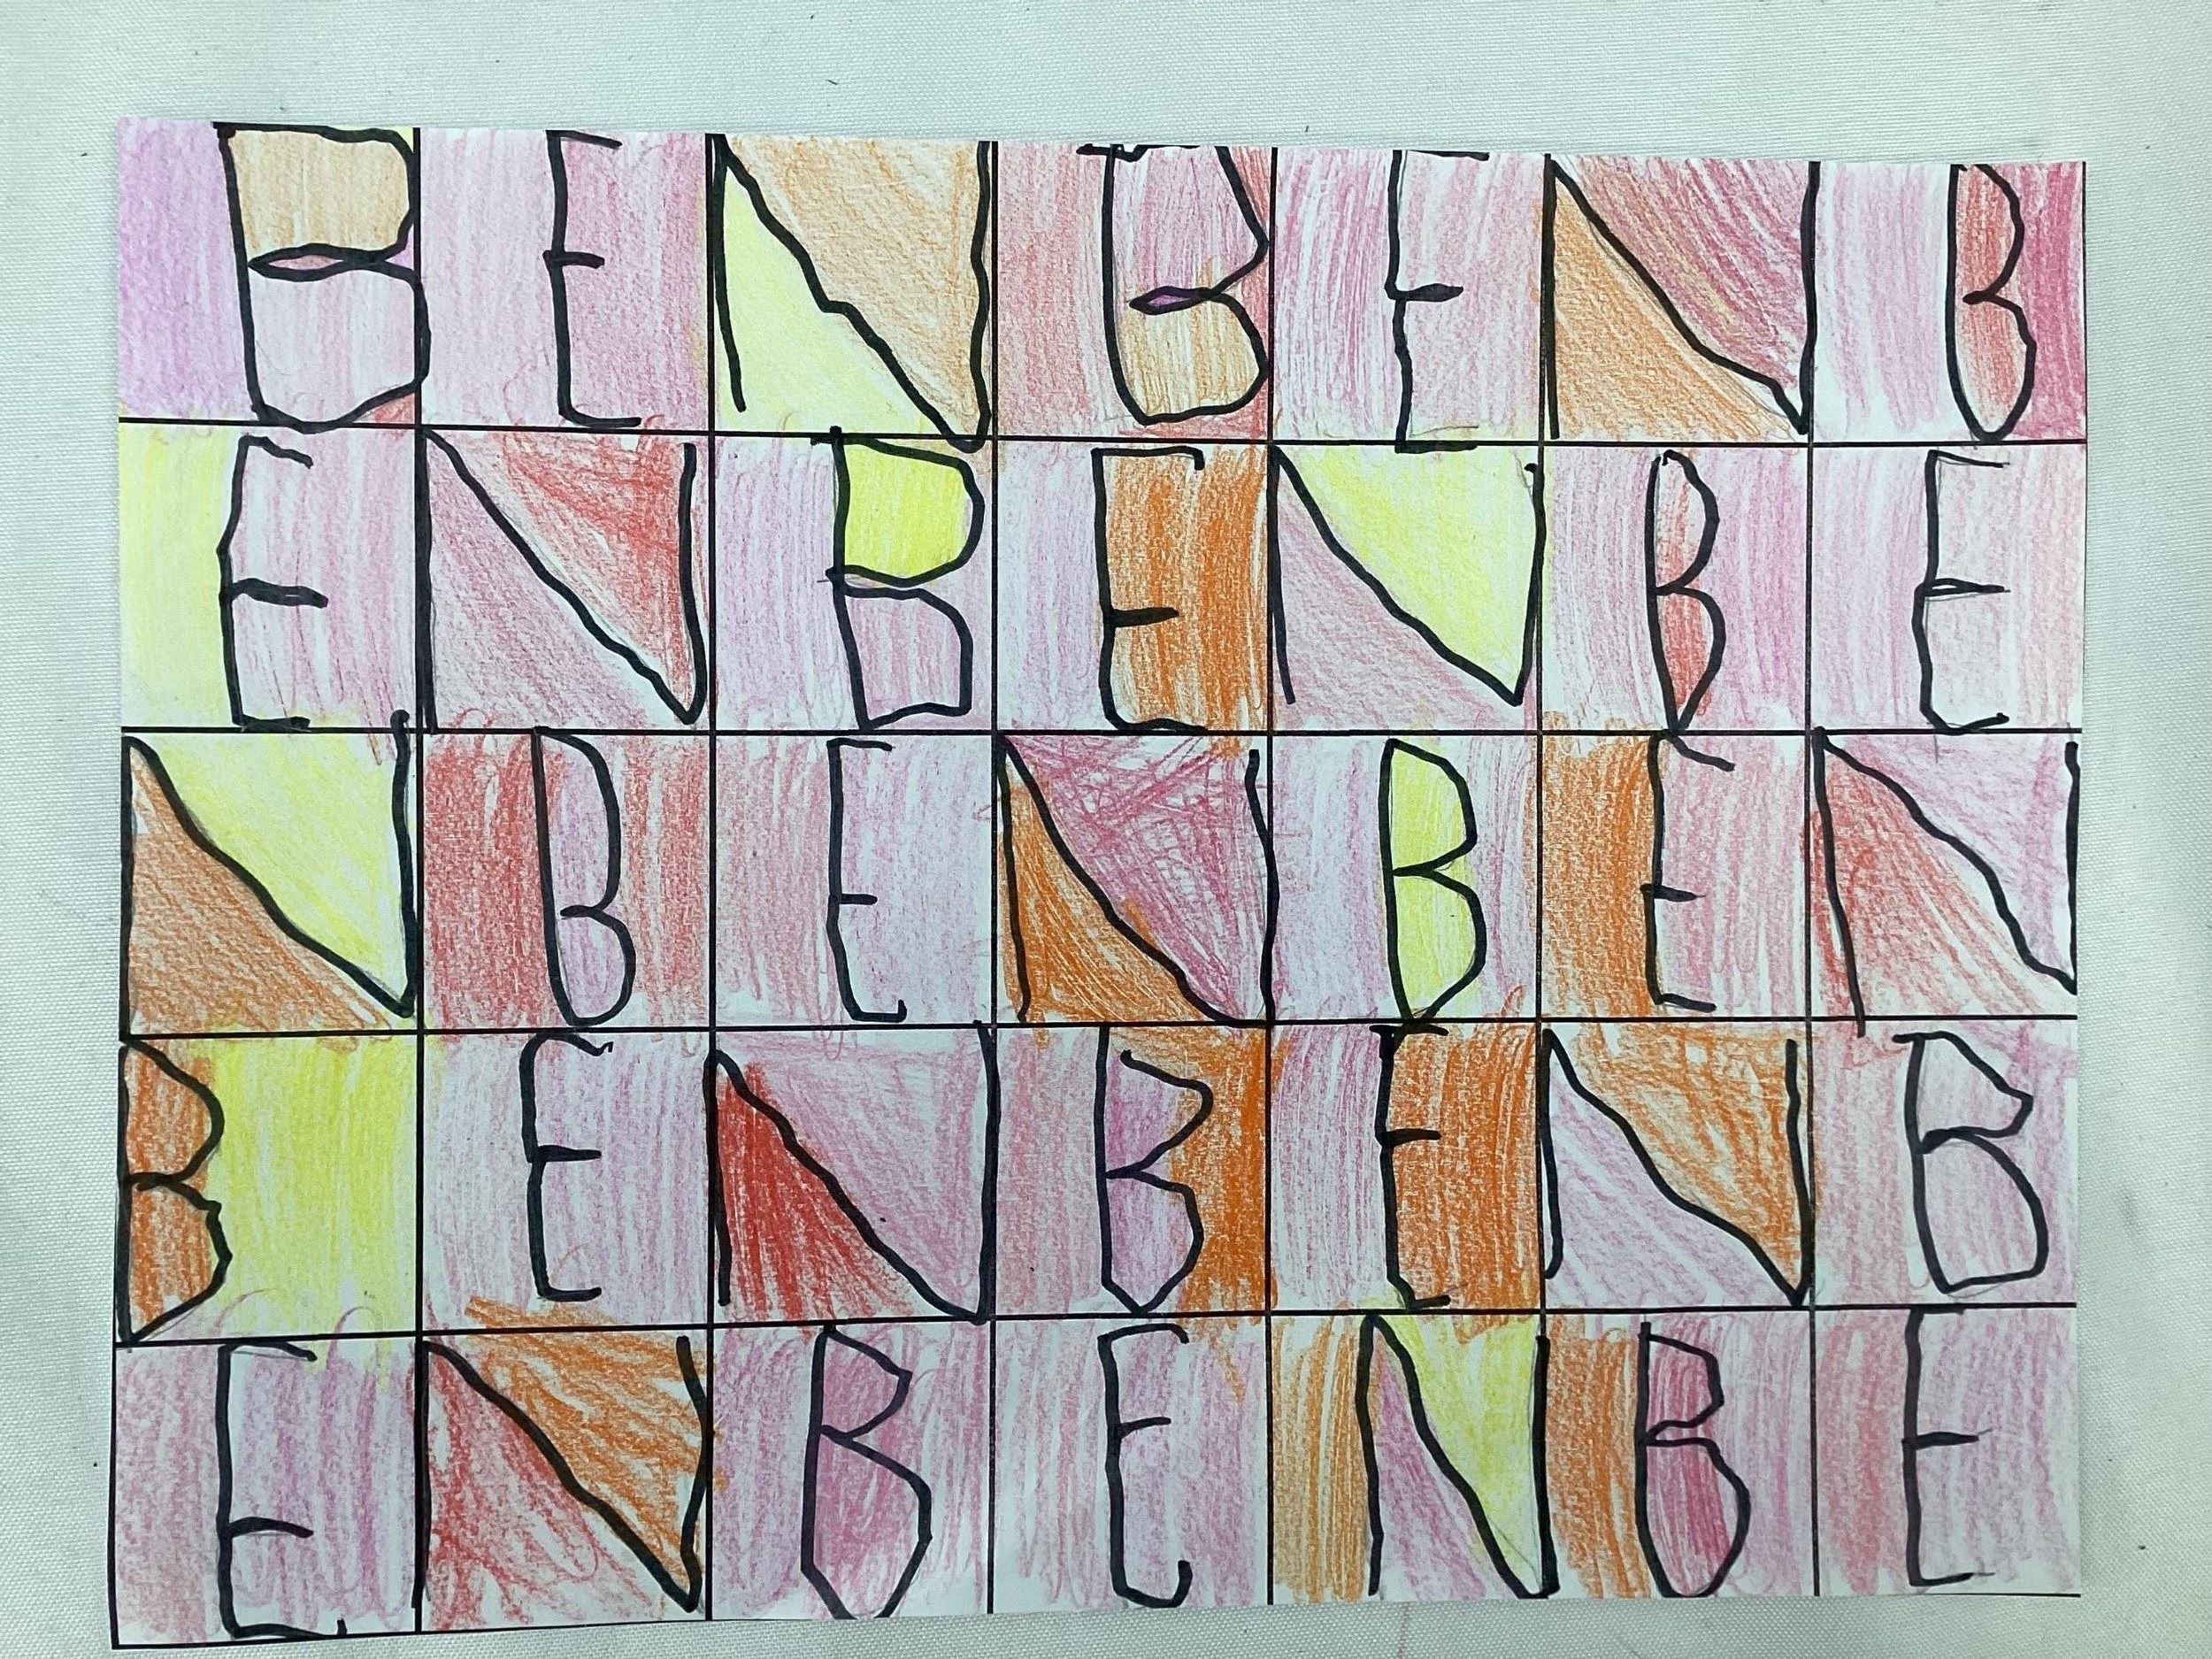 B E N B E N B
E N B E N B E
N B E N B E N
B E N B E N B
E N B E N B E